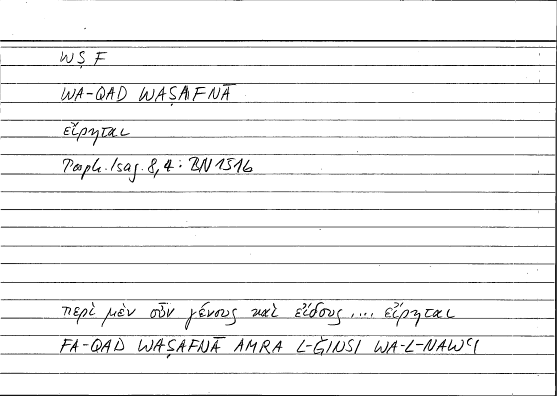 WṢF
WA-QAD WAṢAFNĀ
εἴρηται
Porph. Isag. 8,4 : BN 1516
περὶ μὲν οὖν γένους καὶ εἴδους ... εἴρηται
FA-QAD WAṢAFNĀ AMRA L-ǦINSI WA-L-NAWʿI